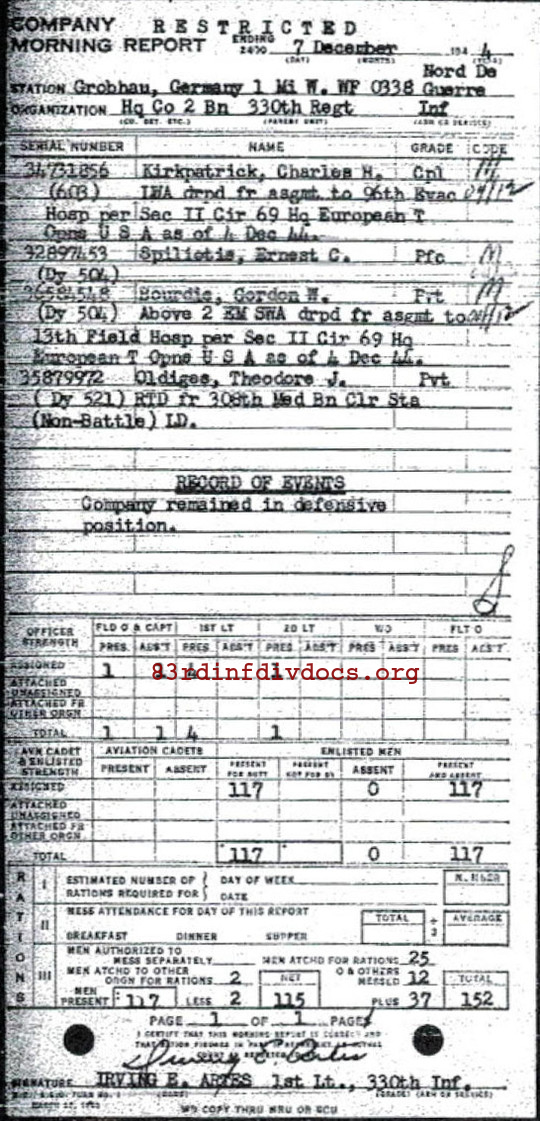 COMPANY RESTRICTED
MORNING REPORT ENDING 2400 7 December 1944
(DAY) (MONTH) (YEAR)
Nord De
STATION Grobhau, Germany 1 Mi W. WF 0338 Guerre
ORGANIZATION Hq Co 2 Bn 330th Regt Inf
(CO. DET. ETC.) (PARENT UNIT) (ARM OR SERVICE)
SERIAL NUMBER NAME GRADE CODE
34731856 Kirkpatrick, Charles H. Cpl
(603) LWA drpd fr asgmt to 96th Evac
Hosp per Sec II Cir 69 Hq European T
Opns U S A as of 4 Dec 44.
32897453 Spiliotis, Ernest C. Pfc
(Dy 504)
36584548 Bourdie, Gordon W. Pvt
(Dy 504) Above 2 EM SWA drpd fr asgmt to
13th Field Hosp per Sec II Cir 69 Hq
European T Opns U S A as of 4 Dec 44.
35879972 Oldiges, Theodore J. Pvt
( Dy 521) RTD fr 308th Med Bn Clr Sta
(Non-Battle) LD.
RECORD OF EVENTS
Company remained in defensive
position.
OFFICER STRENGTH FLD O & CAPT 1ST LT 2D LT WO FLT O
PRES ABS'T PRES ABS'T PRES ABS'T PRES ABS'T PRES ABS'T
ASSIGNED 1 1 4 1
83rdinfdivdocs.org
ATTACHED UNASSIGNED
ATTACHED FR OTHER ORGN
TOTAL 1 1 4 1
AVN CADET & ENLISTED STRENGTH AVIATION CADETS ENLISTED MEN
PRESENT ABSENT PRESENT FOR DUTY PRESENT NOT FOR DY ABSENT PRESENT AND ABSENT
ASSIGNED 117 0 117
ATTACHED UNASSIGNED
ATTACHED FR OTHER ORGN
TOTAL 117 0 117
RATIONS
I ESTIMATED NUMBER OF RATIONS REQUIRED FOR DAY OF WEEK DATE NUMBER
II MESS ATTENDANCE FOR DAY OF THIS REPORT TOTAL ÷ 3 AVERAGE
BREAKFAST DINNER SUPPER
III MEN AUTHORIZED TO MESS SEPARATELY MEN ATCHD FOR RATIONS 25
MEN ATCHD TO OTHER ORGN FOR RATIONS 2 NET O & OTHERS MESSED 12 TOTAL
MEN PRESENT 117 LESS 2 115 PLUS 37 152
PAGE 1 OF 1 PAGES
I CERTIFY THAT THIS MORNING REPORT IS CORRECT AND
SIGNATURE IRVING E. ARTES 1st Lt., 330th Inf.
(GRADE) (ARM OR SERVICE)
NO COPY THRU MRU OR SCU